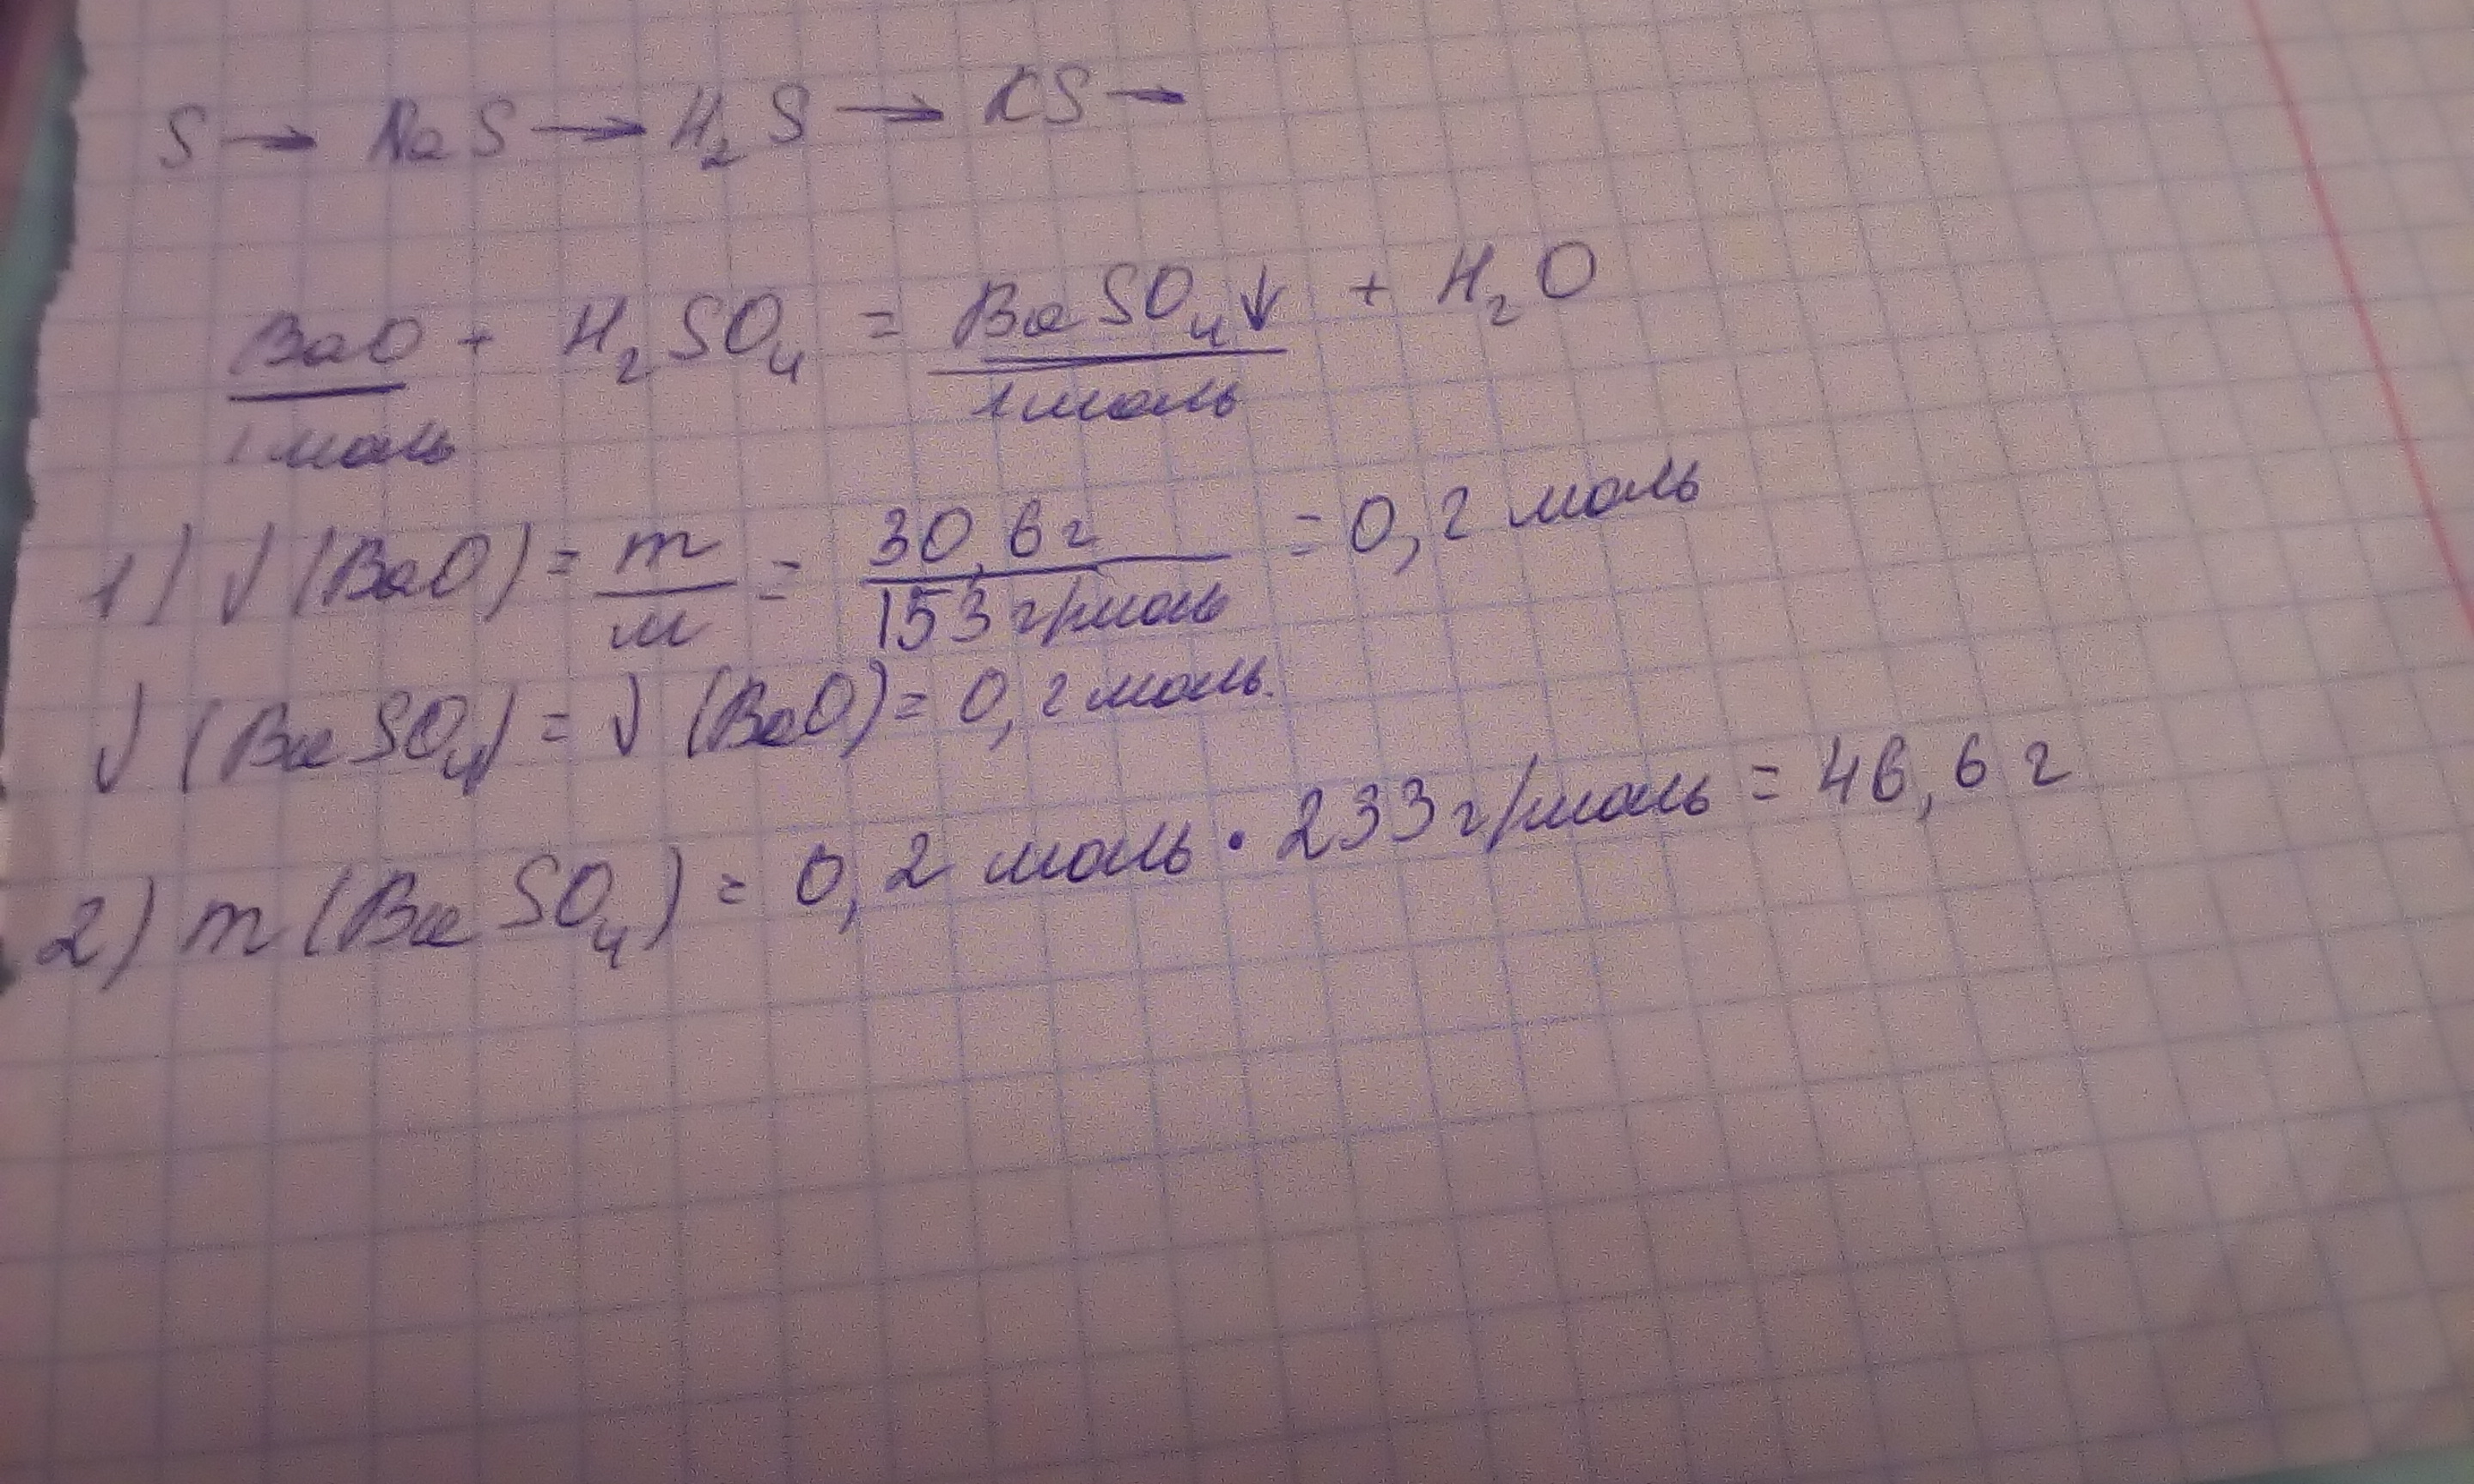 S → NaS → H₂S → KS →
BaO + H₂SO₄ = BaSO₄↓ + H₂O
1 моль 1 моль
1) ν (BaO) = m/м = 30,6г/153 г/моль = 0,2 моль
ν (BaSO₄) = ν (BaO) = 0,2 моль.
2) m (BaSO₄) = 0,2 моль · 233 г/моль = 46,6 г